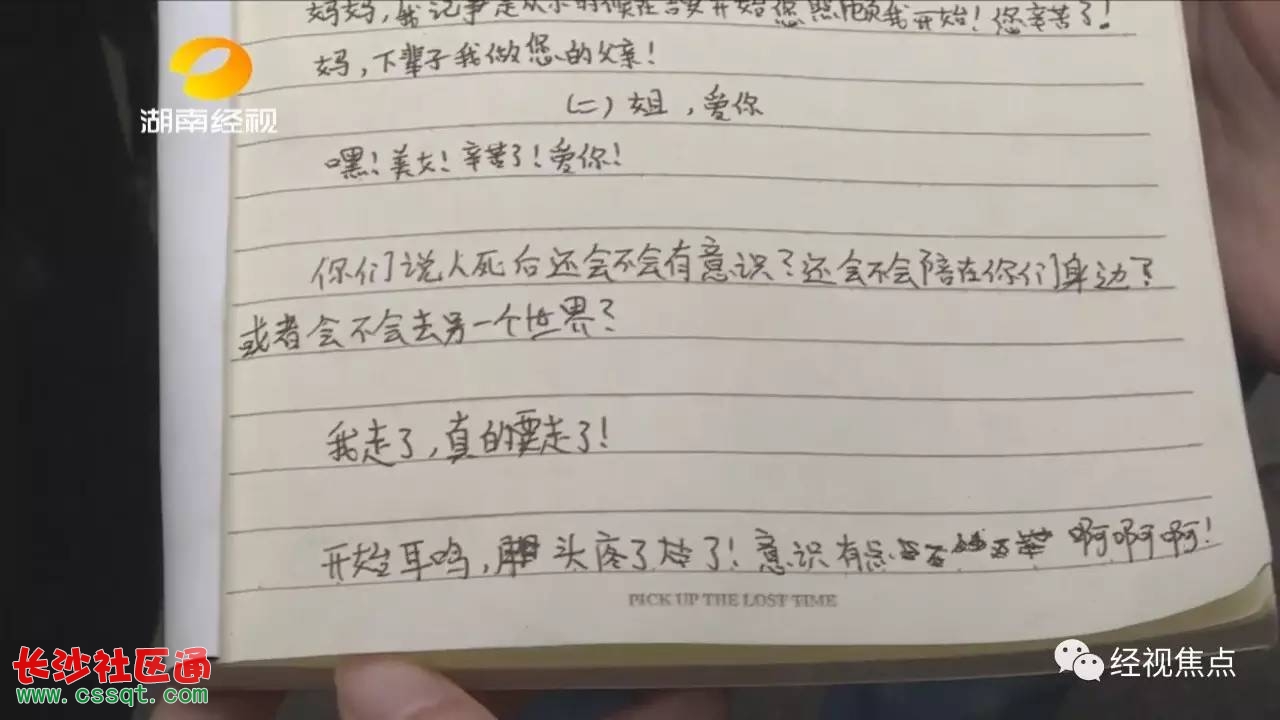 妈妈,我记事是从小的时候在吉安开始您照顾我开始!您辛苦了!
妈,下辈子我做您的父亲!
湖南经视
(二)姐,爱你
嘿!美女!辛苦了!爱你!
你们说人死后还会不会有意识?还会不会陪在你们身边?
或者会不会去另一个世界?
我走了,真的要走了!
开始耳鸣,头疼了 了!意识有点 啊啊啊!
PICK UP THE LOST TIME
长沙社区通
www.cssqt.com
经视焦点